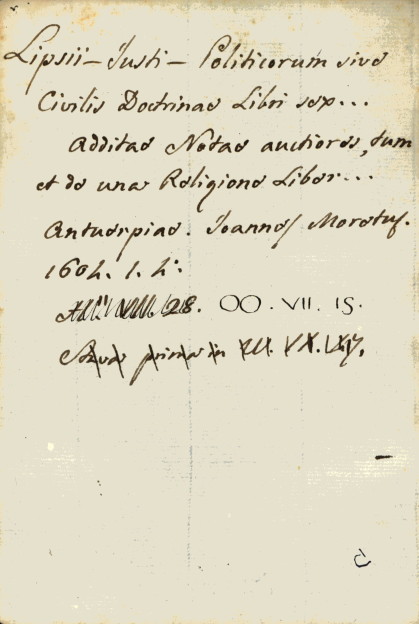 Lipsii – Justi – Politicorum sive
Civilis Doctrinae Libri sex...
Additae Notae auctiores, tum
et de una Religione Liber...
Antuerpiae. Joannes Moretus.
1604. 1. 4°.
28. OO. VII. 15.
prima in VII. VX.
C